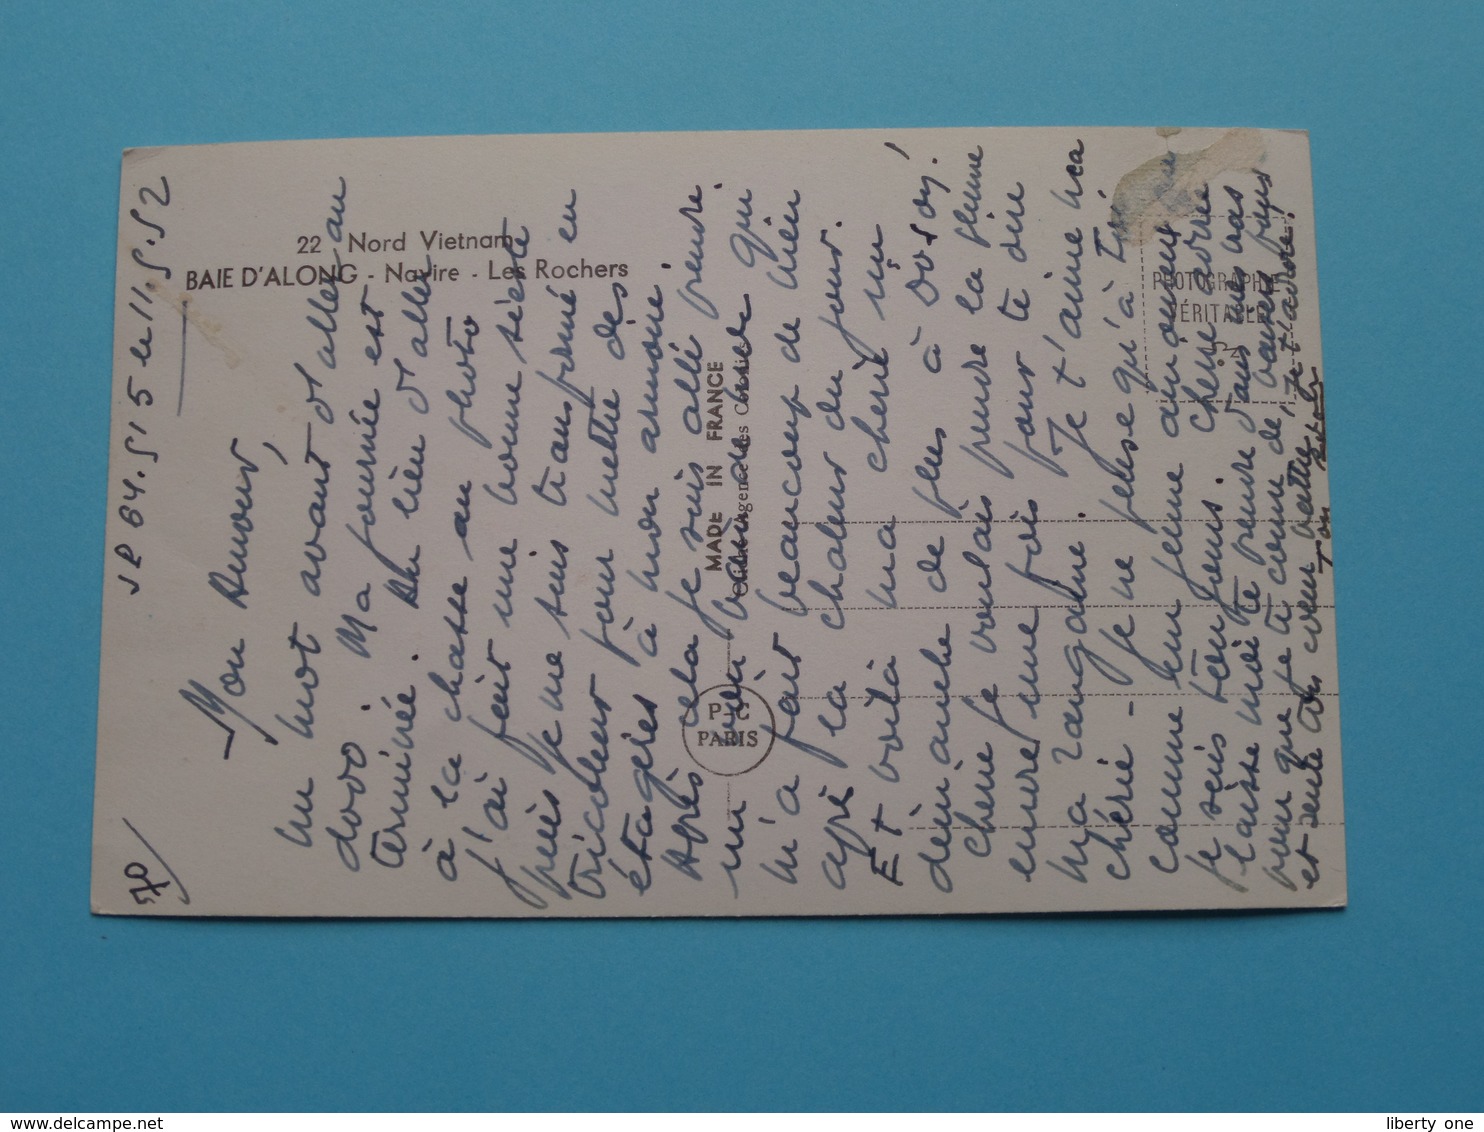 22 Nord Vietnam
BAIE D'ALONG - Navire - Les Rochers
MADE IN FRANCE
P-C
PARIS
PHOTOGRAPHIE
VÉRITABLE
SP 64.515 le 11.5.52
570
Mon Amour,
un mot avant d'aller au
dodo. Ma journée est
terminée. Au lieu d'aller
à la chasse au photo
j'ai fait une bonne sieste
puis je me suis transformé en
tricoleur pour mettre des
étagères à mon armoire.
Après cela je suis allé prendre
un bain de mer qui
m'a fait beaucoup de bien
après la chaleur du jour.
Et voilà ma cherie un
dimanche de plus à Doson!
cherie je voulais prendre la plume
encore une fois pour te dire
ma zougame. Je t'aime ma
chérie - je ne pense qu'à toi
comme un jeune amoureux
je suis toujours. cherie adorée
laisse moi te prendre dans mes bras
pour que je te couvre de baisers puis
et sente ton coeur battre. je t'adore!
Ton
liberty one